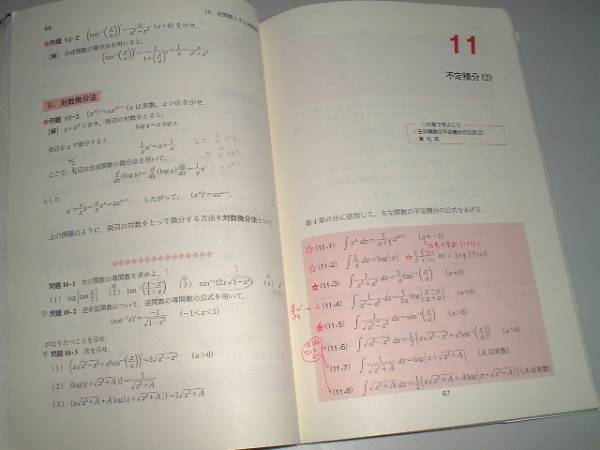 66
例題 10-2 (tan⁻¹(x/a))′ = a/(a²+x²) (a≠0) を示せ.
[解] 合成関数の微分法を用いると,
(tan⁻¹(x/a))′ = 1/(1+(x/a)²)・1/a = a/(a²+x²)
5. 対数微分法
例題 10-3 (xᵅ)′=αxᵅ⁻¹ (αは実数, x>0) を示せ.
[解] y=xᵅ とおき, 両辺の対数をとると,
log y=α log x.
両辺を x で微分すると,
(1/y)y′=α×1/x
ここで, 左辺は合成関数の微分法を用いて,
d/dx(log y)=d/dy(log y)dy/dx=(1/y)y′
とした
したがって, (xᵅ)′=αxᵅ⁻¹.
上の例題のように, 両辺の対数をとって微分する方法を対数微分法という.
問題 10-1 次の関数の導関数を求めよ.
(1) log|tan x/2| (2) tan⁻¹((1-x)/(1+x)) (3) sin⁻¹(2x√(1-x²)) (4)
問題 10-2 逆余弦関数について, 逆関数の導関数の公式を用いて,
(cos⁻¹x)′=-1/√(1-x²) (-1<x<1)
がなりたつことを示せ.
問題 10-3 次を示せ.
(1) (x√(a²-x²)+a² sin⁻¹(x/a))′=2√(a²-x²) (a>0)
(2) (log|x+√(x²+A)|)′=1/√(x²+A)
(3) (x√(x²+A)+A log|x+√(x²+A)|)′=2√(x²+A)
11
不定積分(2)
この章で学ぶこと
・主な関数の不定積分の公式(2)
・漸化式
第4章の分に追加して, 主な関数の不定積分の公式をあげる.
(11-1) ∫xᵅ dx=1/(α+1) xᵅ⁺¹ (α≠-1)
(11-2) ∫1/x dx=log|x|
(11-3) ∫1/(x²+a²) dx=1/a tan⁻¹(x/a) (a≠0)
(11-4) ∫1/(x²-a²) dx=1/2a log|(x-a)/(x+a)| (a≠0)
(11-5) ∫1/√(a²-x²) dx=sin⁻¹(x/a) (a>0)
(11-6) ∫√(a²-x²) dx=1/2{x√(a²-x²)+a² sin⁻¹(x/a)} (a>0)
(11-7) ∫1/√(x²+A) dx=log|x+√(x²+A)| (Aは実数)
(11-8) ∫√(x²+A) dx=1/2{x√(x²+A)+A log|x+√(x²+A)|} (Aは実数)
67